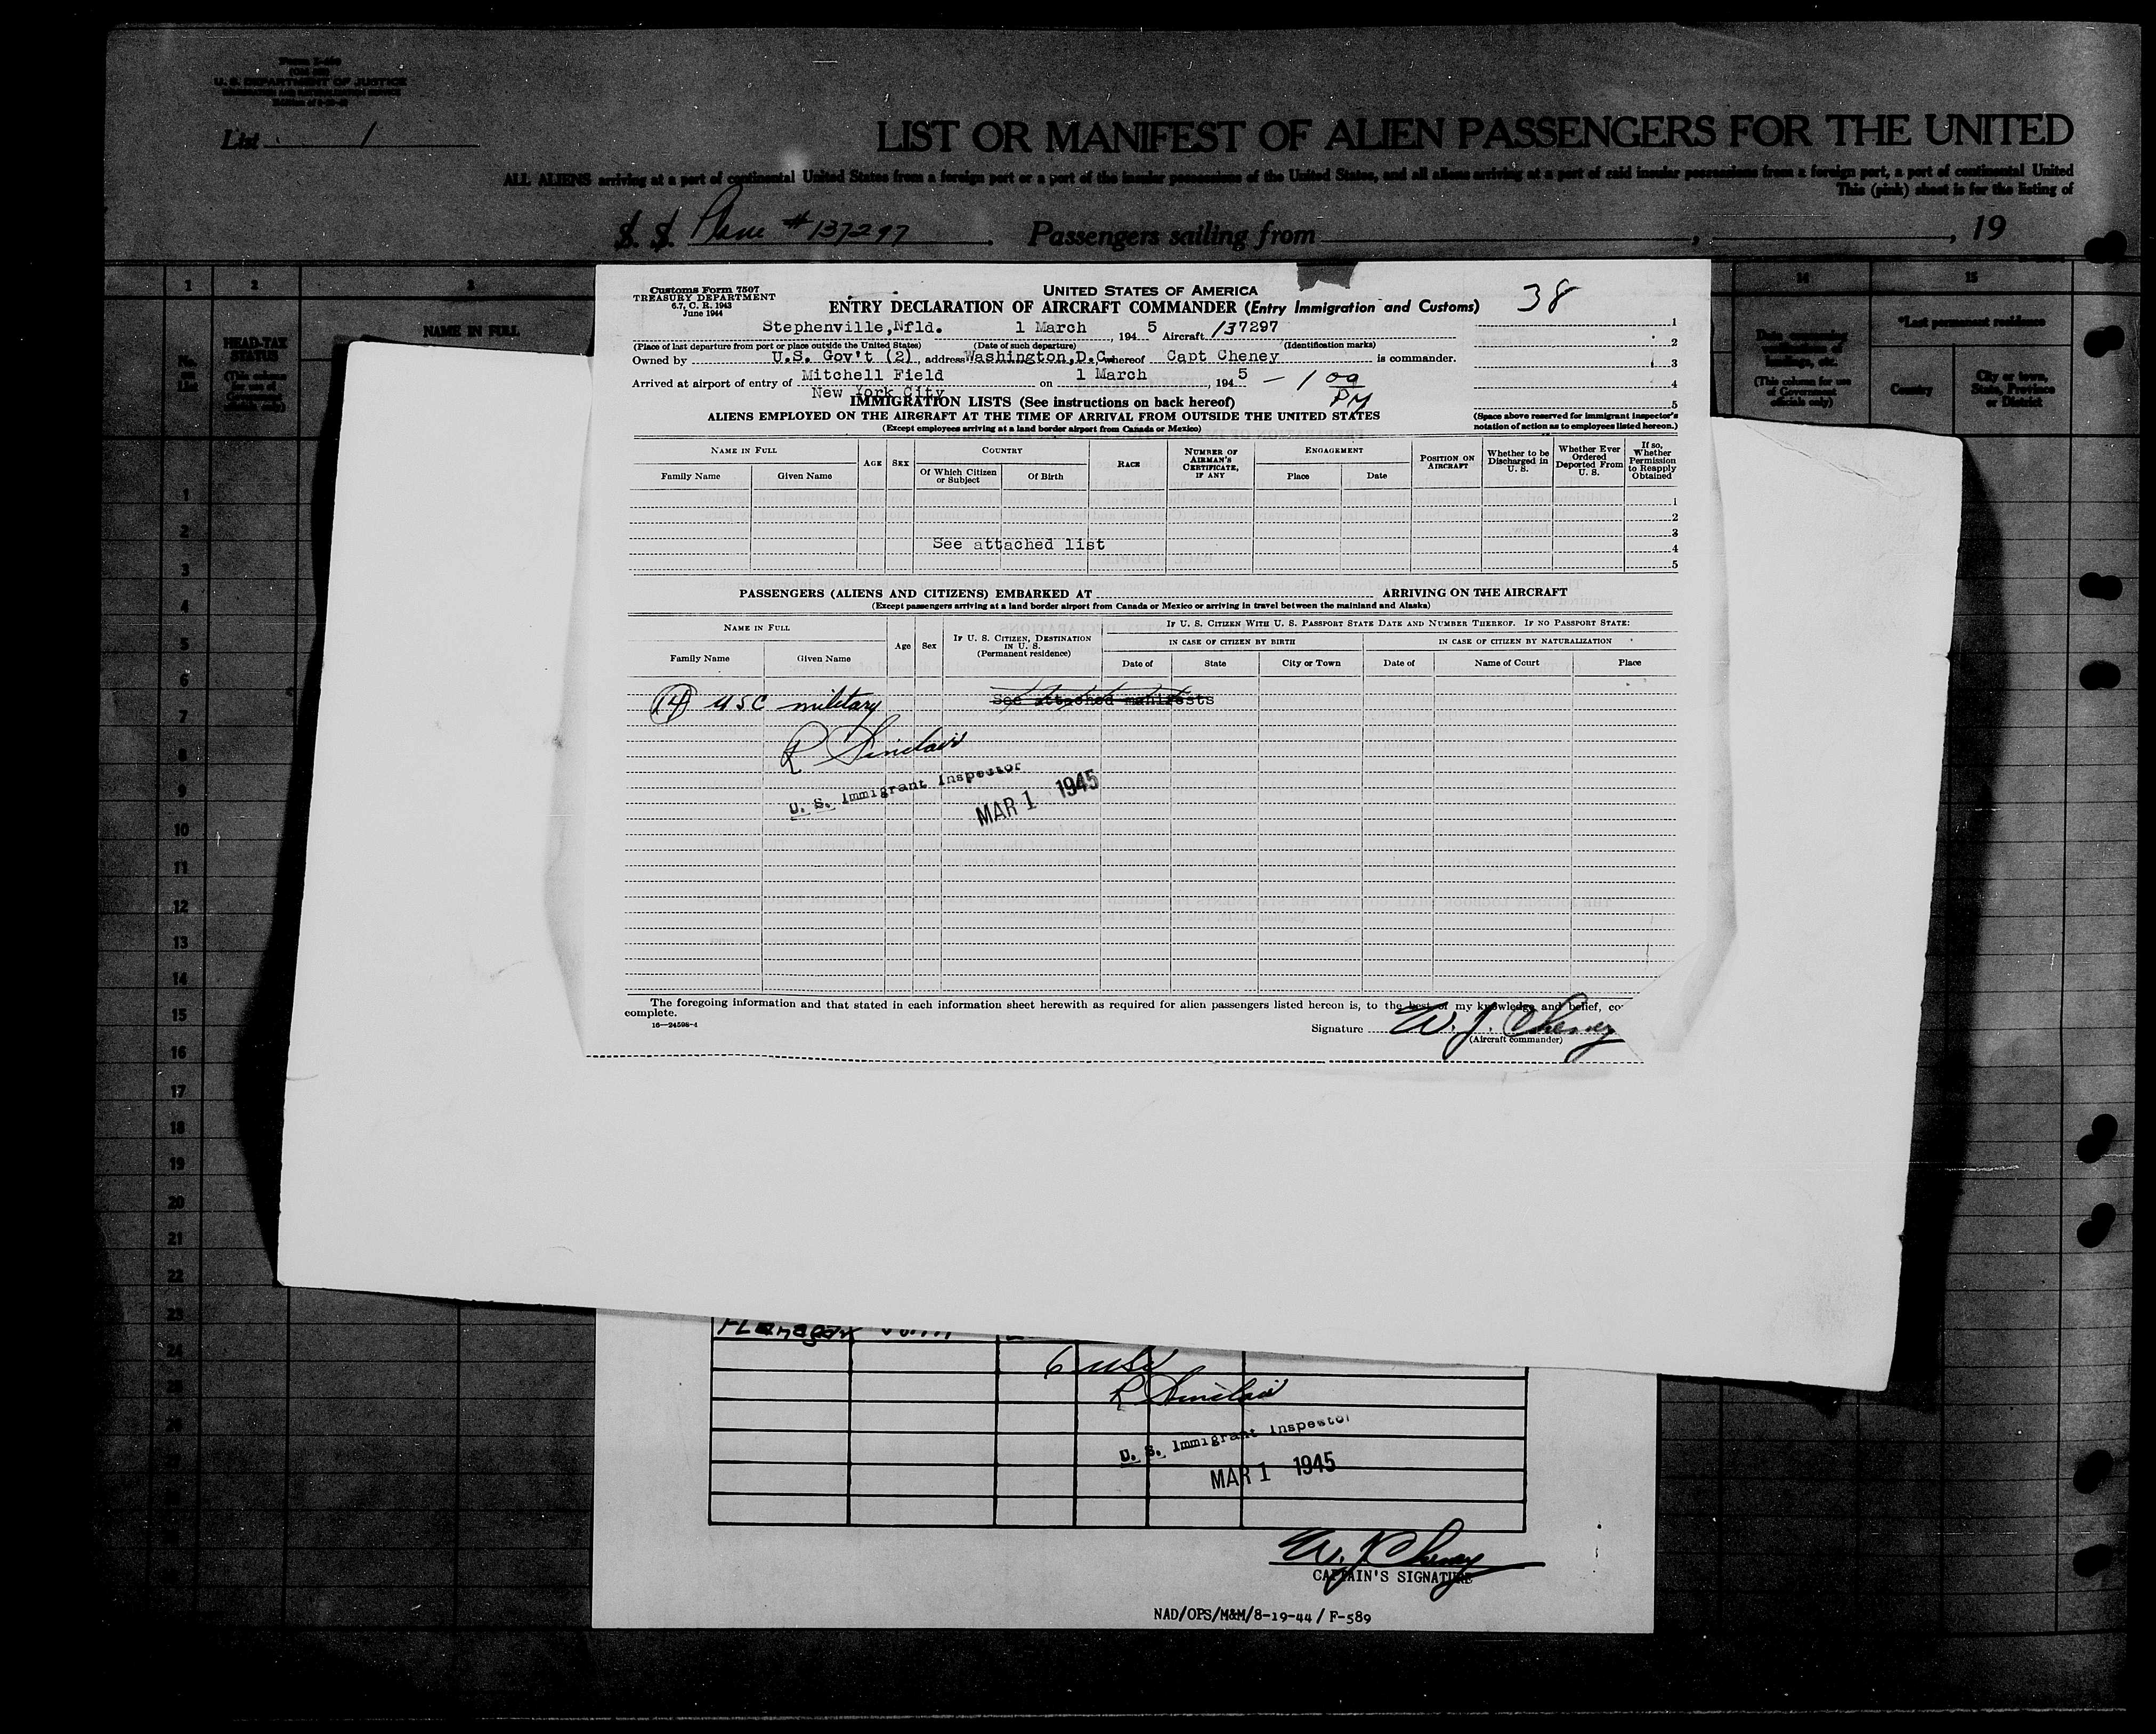 Form I-466
U. S. DEPARTMENT OF JUSTICE
IMMIGRATION AND NATURALIZATION SERVICE
List 1
LIST OR MANIFEST OF ALIEN PASSENGERS FOR THE UNITED
ALL ALIENS arriving at a port of continental United States from a foreign port or a port of the insular possessions of the United States, and all aliens arriving at a port of said insular possessions from a foreign port, a port of continental United
This (pink) sheet is for the listing of
S. S. Plane #137297 . Passengers sailing from , , 19
1 2 3 14 15
No. on List
HEAD-TAX STATUS
(This column for use of Government officials only)
NAME IN FULL
(This column for use of Government officials only)
*Last permanent residence
Country
City or town, State, Province or District
1
2
3
4
5
6
7
8
9
10
11
12
13
14
15
16
17
18
19
20
21
22
23
24
25
26
27
Customs Form 7507
TREASURY DEPARTMENT
6.7, C. R. 1943
June 1944
UNITED STATES OF AMERICA
ENTRY DECLARATION OF AIRCRAFT COMMANDER (Entry Immigration and Customs)
38
Stephenville,Nfld. 1 March , 194 5 Aircraft 137297
(Place of last departure from port or place outside the United States) (Date of such departure) (Identification marks)
Owned by U.S. Gov't (2) , address Washington,D.C. whereof Capt Cheney is commander.
Arrived at airport of entry of Mitchell Field on 1 March , 194 5 — 1 00 PM
New York City
1
2
3
4
5
(Space above reserved for immigrant inspector's notation of action as to employees listed hereon.)
IMMIGRATION LISTS (See instructions on back hereof)
ALIENS EMPLOYED ON THE AIRCRAFT AT THE TIME OF ARRIVAL FROM OUTSIDE THE UNITED STATES
(Except employees arriving at a land border airport from Canada or Mexico)
NAME IN FULL
Family Name Given Name
AGE SEX
COUNTRY
Of Which Citizen or Subject Of Birth
RACE
NUMBER OF AIRMAN'S CERTIFICATE, IF ANY
ENGAGEMENT
Place Date
POSITION ON AIRCRAFT
Whether to be Discharged in U. S.
Whether Ever Ordered Deported From U. S.
If so, Whether Permission to Reapply Obtained
1
2
3
See attached list
4
5
PASSENGERS (ALIENS AND CITIZENS) EMBARKED AT ARRIVING ON THE AIRCRAFT
(Except passengers arriving at a land border airport from Canada or Mexico or arriving in travel between the mainland and Alaska)
NAME IN FULL
Family Name Given Name
Age Sex
IF U. S. CITIZEN, DESTINATION IN U. S.
(Permanent residence)
IF U. S. CITIZEN WITH U. S. PASSPORT STATE DATE AND NUMBER THEREOF. IF NO PASSPORT STATE:
IN CASE OF CITIZEN BY BIRTH IN CASE OF CITIZEN BY NATURALIZATION
Date of State City or Town Date of Name of Court Place
(14) USC military See attached manifests
R Sinclair
U. S. Immigrant Inspector
MAR 1 1945
The foregoing information and that stated in each information sheet herewith as required for alien passengers listed hereon is, to the best of my knowledge and belief, co
complete.
16—24598-4
Signature W. J. Cheney
(Aircraft commander)
Flanagan John
6 USC
R Sinclair
U. S. Immigrant Inspector
MAR 1 1945
W. J. Cheney
CAPTAIN'S SIGNATURE
NAD/OPS/M&M/8-19-44 / F-589